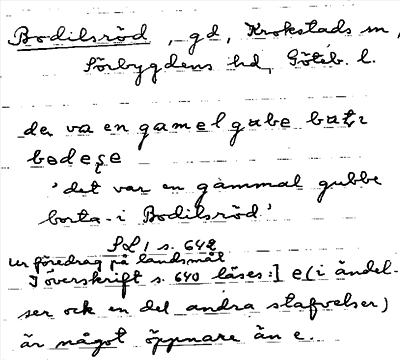 Bodilsröd, gd, Krokstads sn,
Sörbygdens hd, Göteb. l.
de va en gamel gube
bodese
'det var en gammal gubbe
borta i Bodilsröd.'
SL 1 s. 642
ur föredrag på landsmål
I överskrift s. 640 läses:] e (i ändel-
ser ock en del andra stafvelser)
är något öppnare än e.